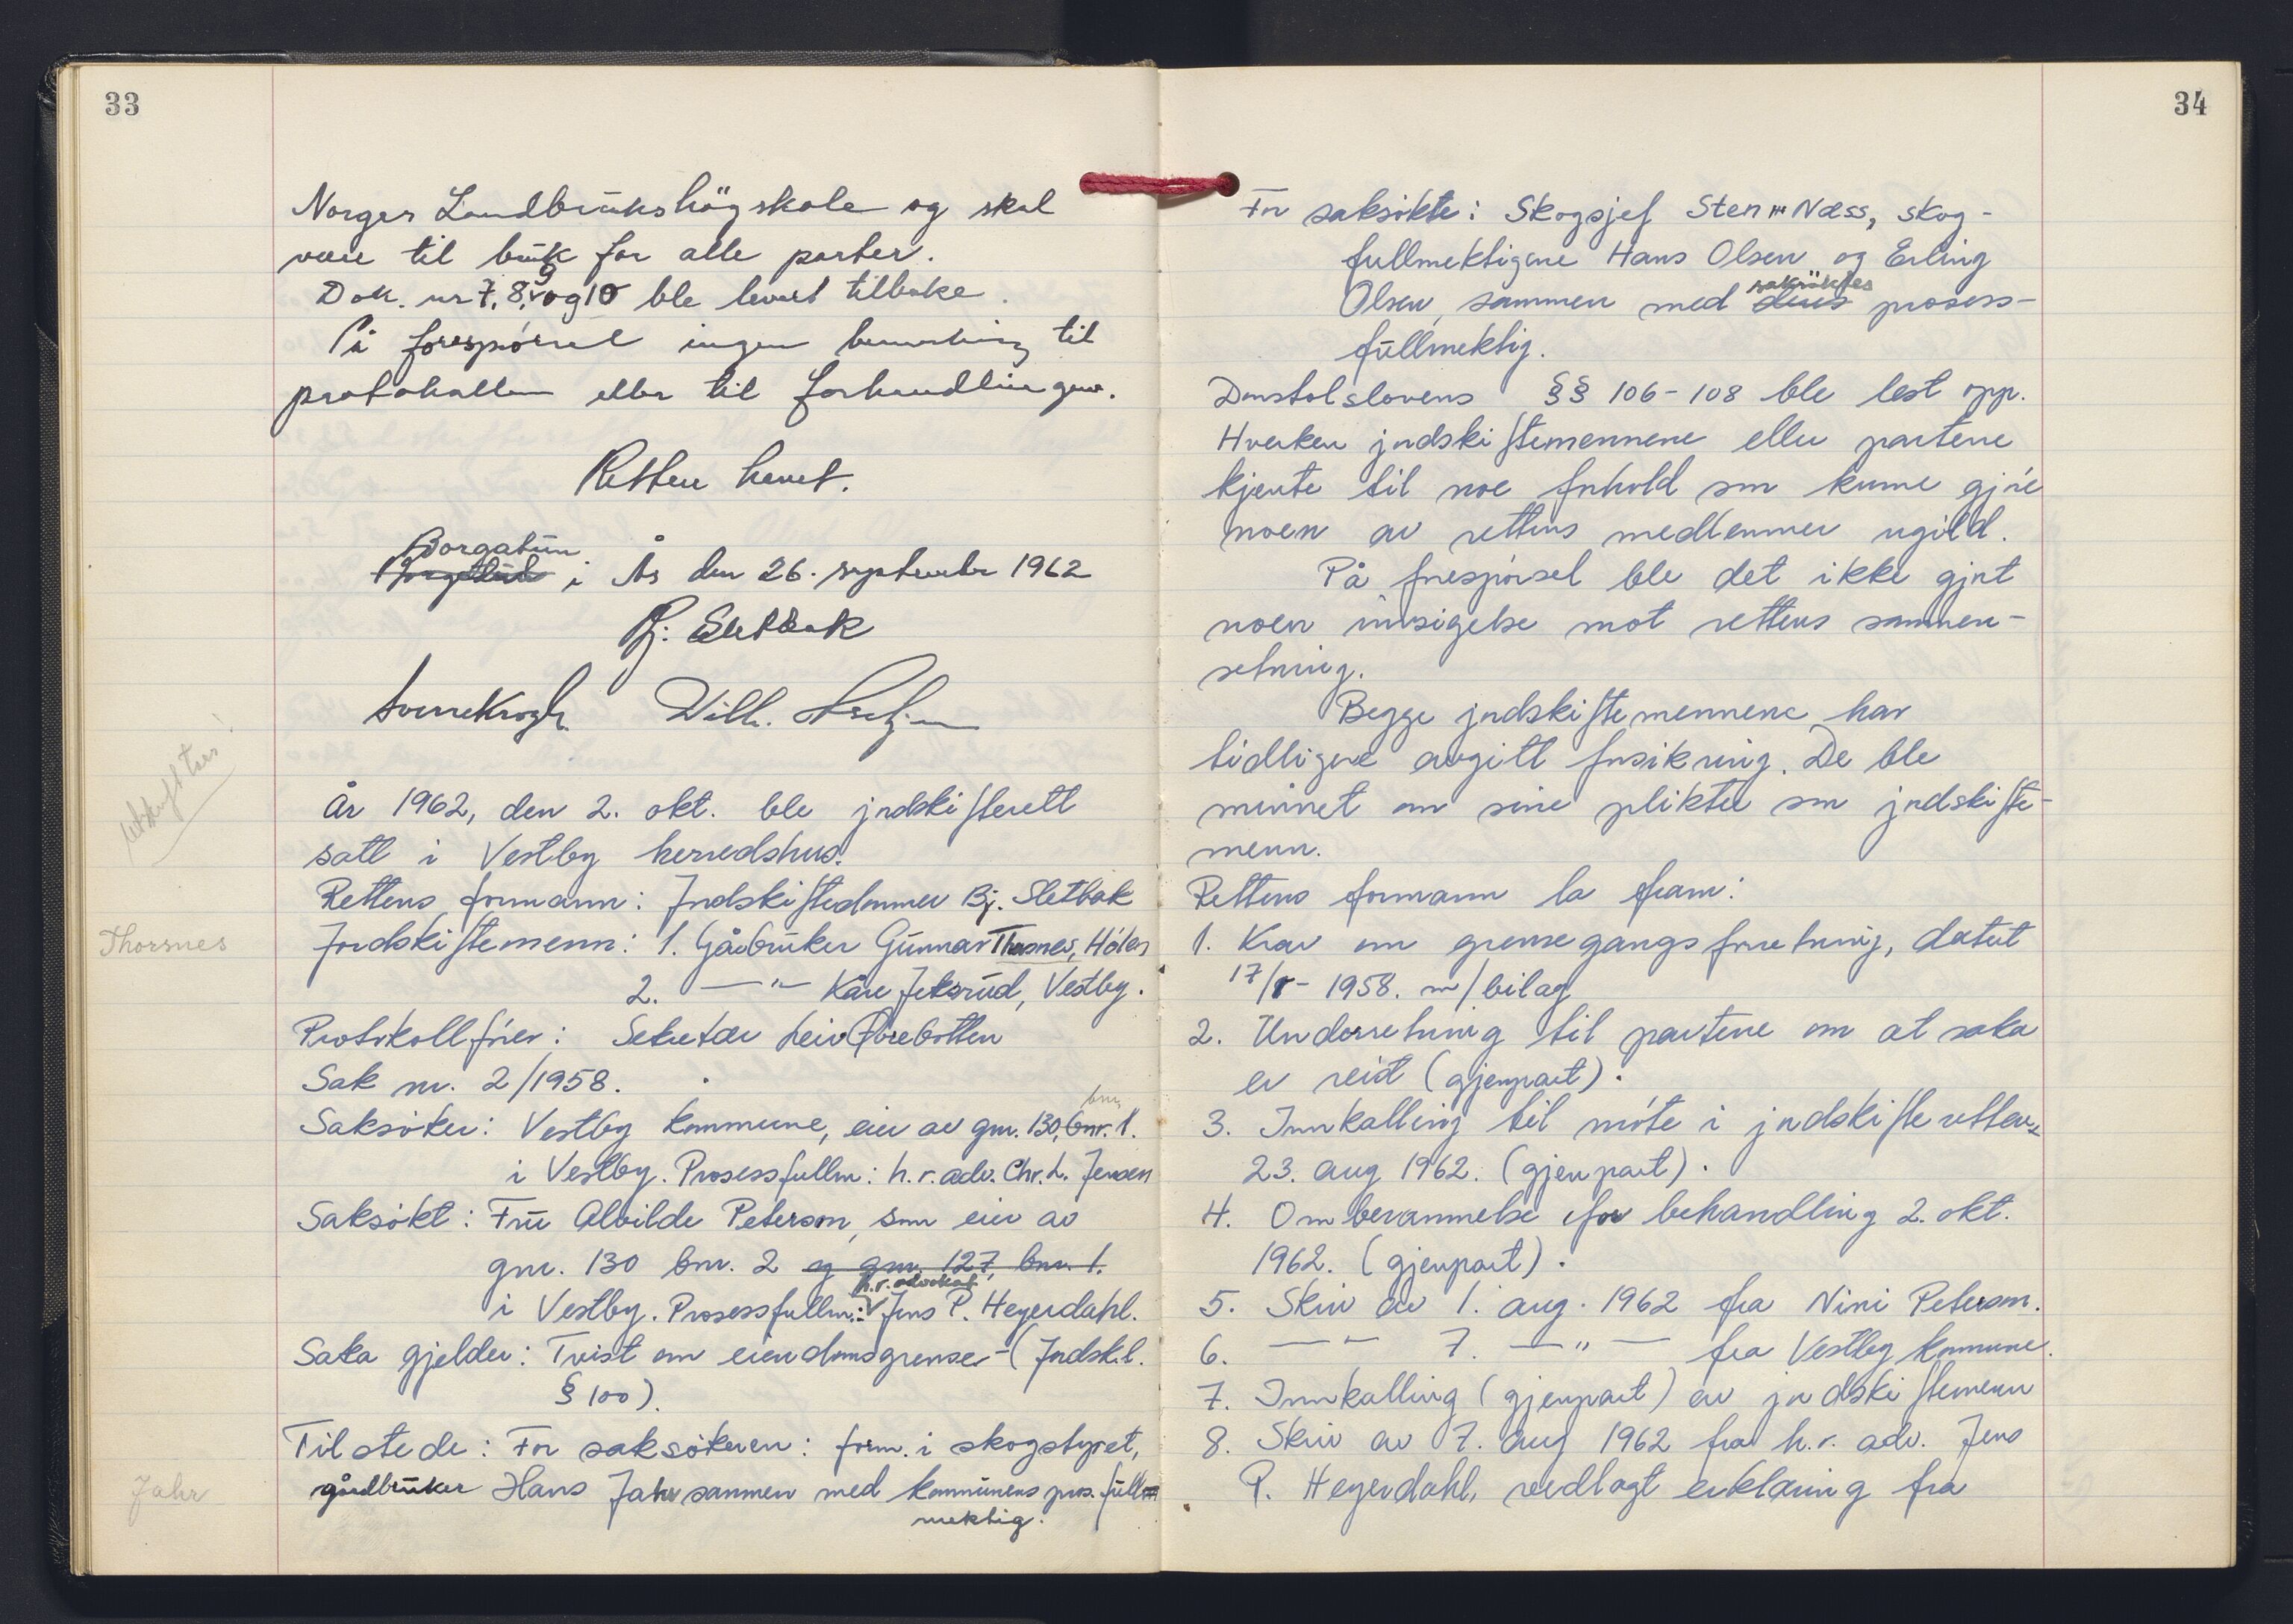 33
Norges Landbrukshögskole og skal
være til bruk for alle parter.
Dok. nr 7, 8, 9 og 10 ble levert tilbake.
På forespörsel ingen bemerkning til
protokollen eller til forhandlingene.
Retten hevet.
Borgatun
i Ås den 26. september 1962
Bj. Sletbak
Sverre Krogh Wilh.
År 1962, den 2. okt. ble jordskifterett
satt i Vestby herredshus.
Rettens formann: Jordskiftedommer Bj. Sletbak
Thorsnes
Jordskiftemenn: 1. Gårdbruker Gunnar Thorsnes, Hölen
2. —"— Kåre Jeksrud, Vestby.
Protokollförer: Sekretær Leiv Övrebotten
Sak nr. 2/1958.
bnr.
Saksöker: Vestby kommune, eier av gnr. 130, bnr. 1.
i Vestby. Prosessfullm: h.r. adv. Chr. L. Jensen
Saksökt: Fru Alvilde Peterson, som eier av
gnr. 130 bnr. 2 og gnr. 127, bnr. 1.
h.r. advokat
i Vestby. Prosessfullm: Jens P. Heyerdahl.
Saka gjelder: Tvist om eiendomsgrense - (Jordsk.l.
§ 100).
Tilstede: For saksökeren: form. i skogstyret,
Jahr
gårdbruker Hans Jahr sammen med kommunens pros. full-
mektig.
34
For saksökte: Skogsjef Sten Næss, skog-
fullmektigene Hans Olsen og Erling
saksöktes
Olsen, sammen med deres prosess-
fullmektig.
Domstolslovens §§ 106-108 ble lest opp.
Hverken jordskiftemennene eller partene
kjente til noe forhold som kunne gjöre
noen av rettens medlemmer ugild.
På forespörsel ble det ikke gjort
noen innsigelse mot rettens sammen-
setning.
Begge jordskiftemennene har
tidligere avgitt forsikring. De ble
minnet om sine plikter som jordskifte-
menn.
Rettens formann la fram:
1. Krav om grensegangsforretning, datert
17/8- 1958. m/bilag
2. Underretning til partene om at saka
er reist (gjenpart).
3. Innkalling til möte i jordskifteretten
23. aug 1962. (gjenpart).
4. Omberammelse for behandling 2. okt.
1962. (gjenpart).
5. Skriv av 1. aug. 1962 fra Nini Peterson.
6. —"— 7. —"— fra Vestby kommune.
7. Innkalling (gjenpart) av jordskiftemenn
8. Skriv av 7. aug 1962 fra h.r. adv. Jens
P. Heyerdahl, vedlagt erklæring fra